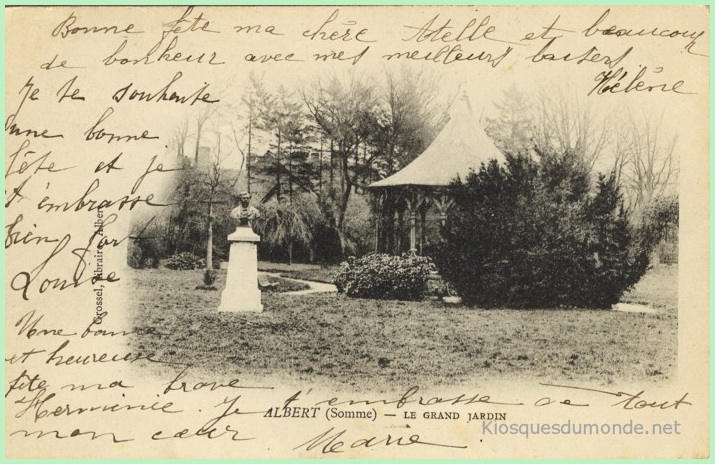 Bonne fête ma chère Adelle et beaucoup
de bonheur avec mes meilleurs baisers
Hélène
Je te souhaite
une bonne
fête et je
t'embrasse
bien for
Louise
Grossel, libraire, Albert
Une bonne
et heureuse
fête ma brave
Herminie. Je t'embrasse de tout
mon cœur Marie
ALBERT (Somme) — LE GRAND JARDIN
Kiosquesdumonde.net